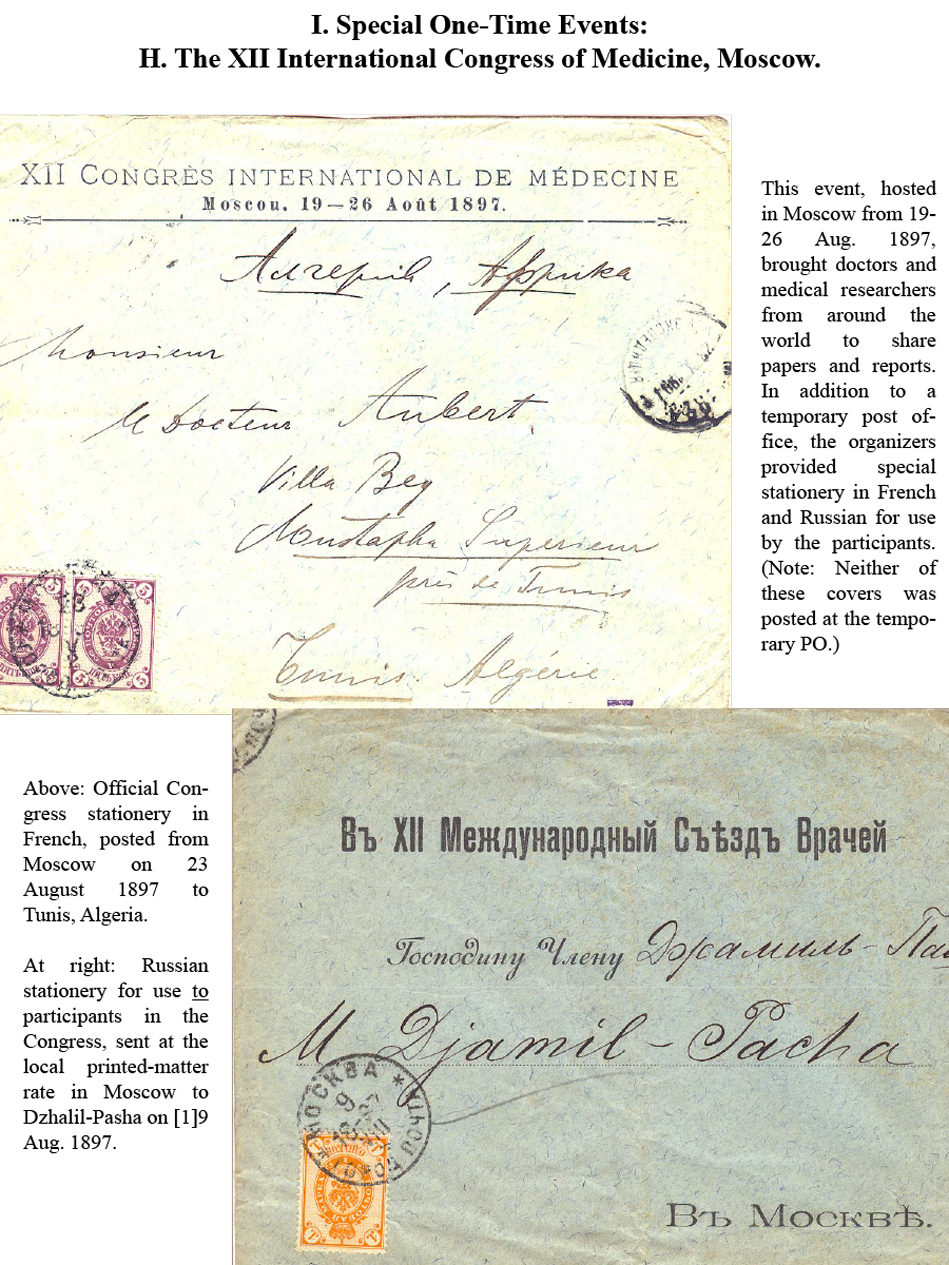 I. Special One-Time Events:
H. The XII International Congress of Medicine, Moscow.
XII CONGRÈS INTERNATIONAL DE MÉDECINE
Moscou. 19–26 Août 1897.
Алгерія, Африка
Monsieur
M Docteur Aubert
Villa Bey
Mustapha Supérieur
près de Tunis
Tunis. Algérie.
This event, hosted
in Moscow from 19-
26 Aug. 1897,
brought doctors and
medical researchers
from around the
world to share
papers and reports.
In addition to a
temporary post of-
fice, the organizers
provided special
stationery in French
and Russian for use
by the participants.
(Note: Neither of
these covers was
posted at the tempo-
rary PO.)
Above: Official Con-
gress stationery in
French, posted from
Moscow on 23
August 1897 to
Tunis, Algeria.
At right: Russian
stationery for use to
participants in the
Congress, sent at the
local printed-matter
rate in Moscow to
Dzhalil-Pasha on [1]9
Aug. 1897.
Въ XII Международный Съѣздъ Врачей
Господину Члену Джамиль-Па
M Djamil-Pacha
МОСКВА
9
ПОЧТА
Въ Москвѣ.